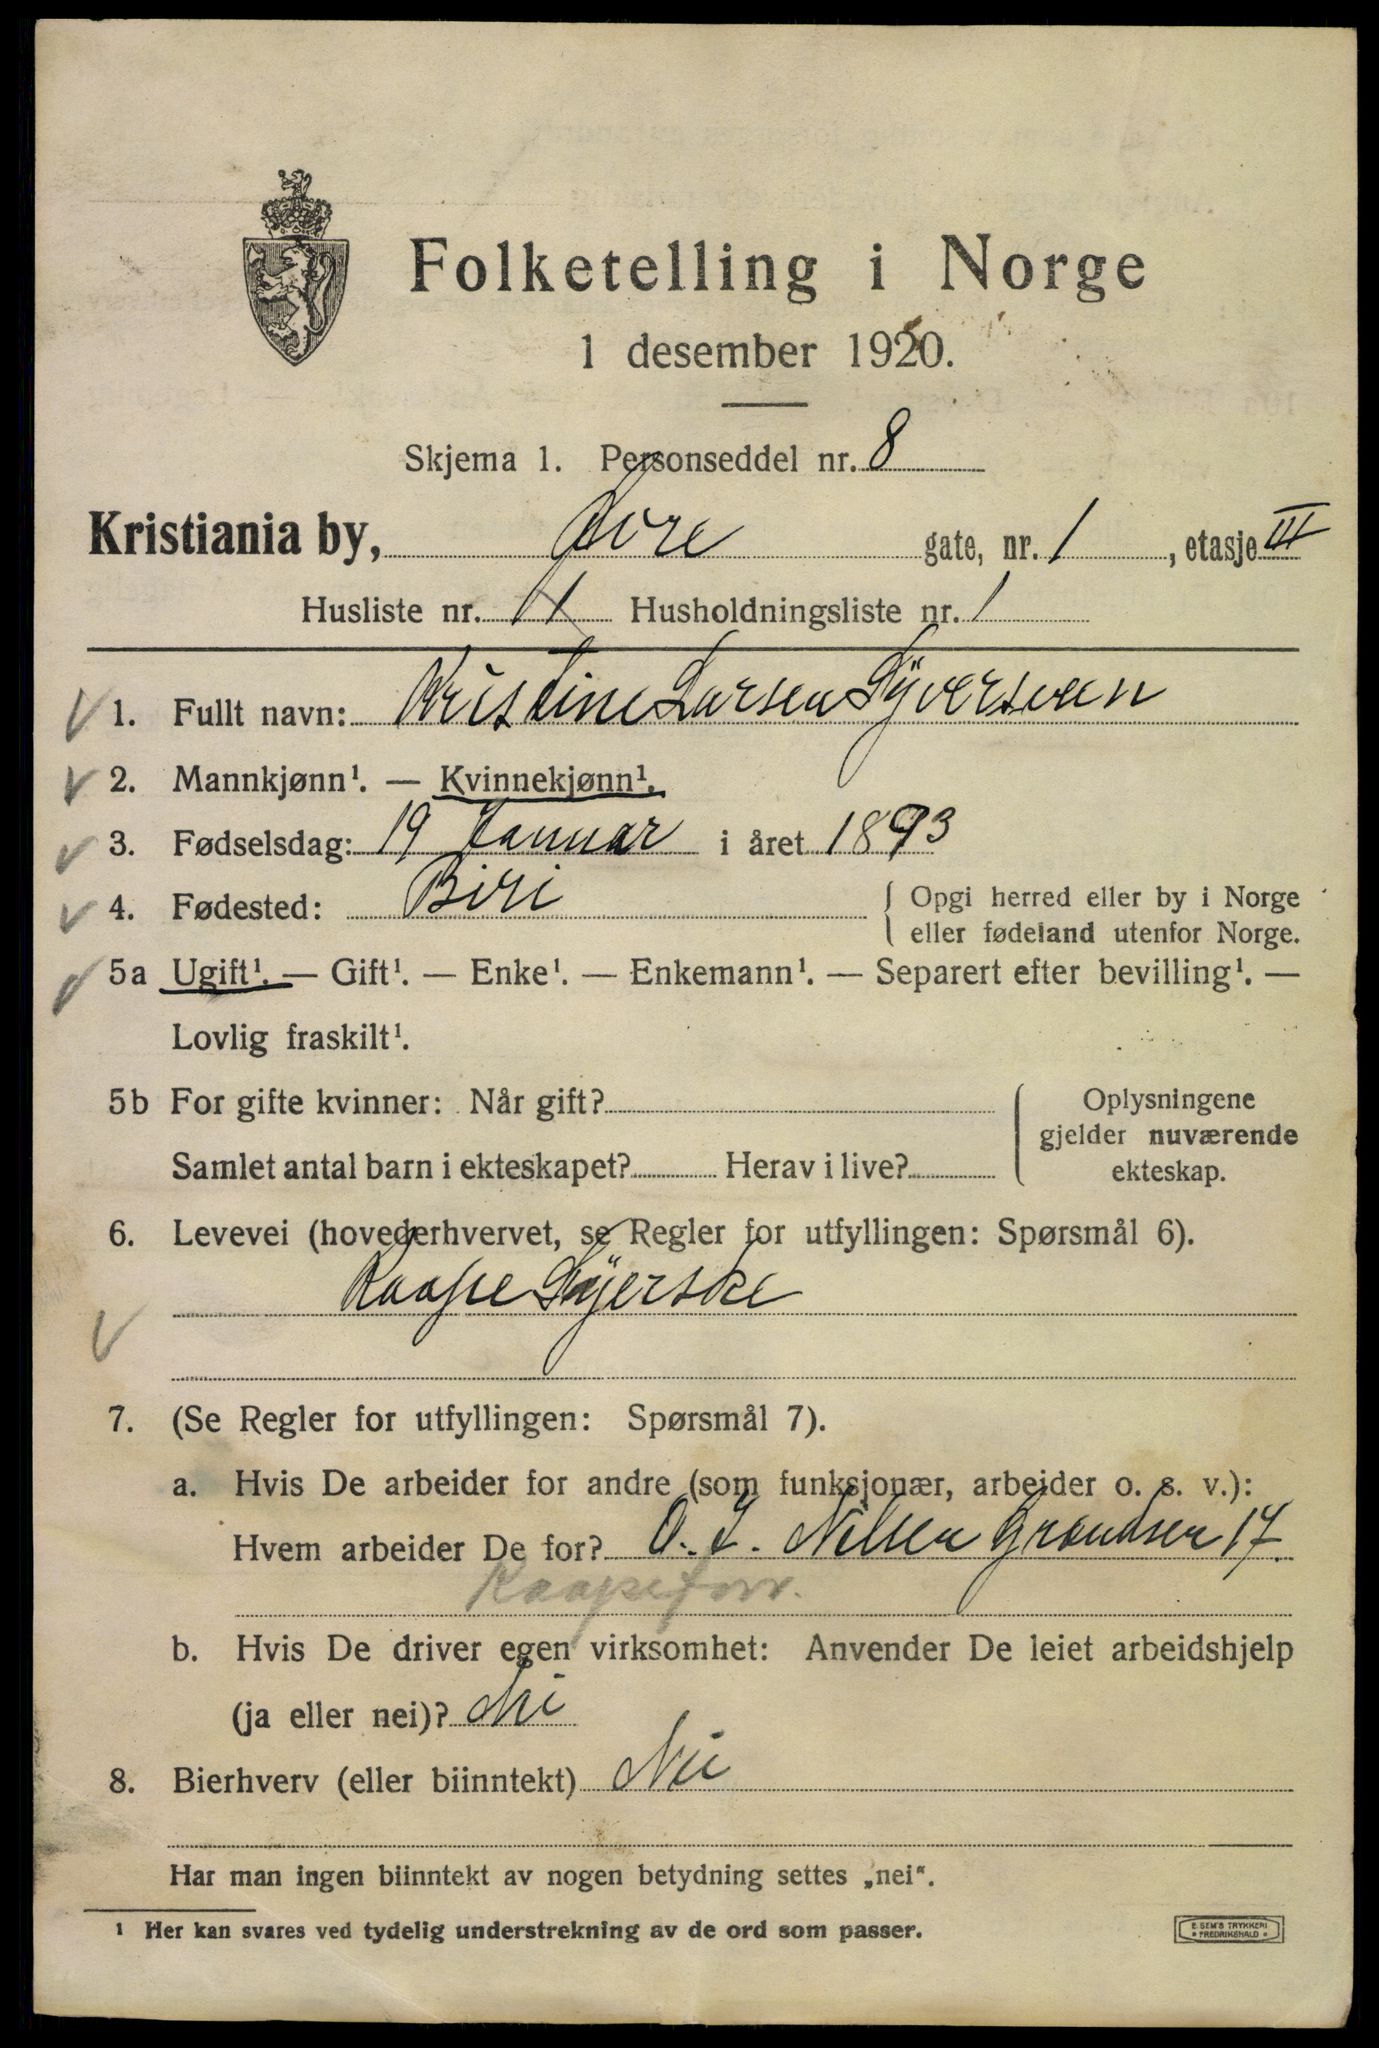 Folketelling i Norge
1 desember 1920.
Skjema 1. Personseddel nr. 8
Kristiania by, Tore gate, nr. 1, etasje III
Husliste nr. 11 Husholdningsliste nr. 1
1. Fullt navn: Kristine Larsen Syversveen
2. Mannkjønn¹. — Kvinnekjønn¹.
3. Fødselsdag: 19 Januar i året 1893
4. Fødested: Biri { Opgi herred eller by i Norge
eller fødeland utenfor Norge.
5a Ugift¹. — Gift¹. — Enke¹. — Enkemann¹. — Separert efter bevilling¹. —
Lovlig fraskilt¹.
5b For gifte kvinner: Når gift? Oplysningene
gjelder nuværende
Samlet antal barn i ekteskapet? Herav i live? ekteskap.
6. Levevei (hovederhvervet, se Regler for utfyllingen: Spørsmål 6).
Kaape Syerske
7. (Se Regler for utfyllingen: Spørsmål 7).
a. Hvis De arbeider for andre (som funksjonær, arbeider o. s. v.):
Hvem arbeider De for? O. I. Nilsen Grændsen 17.
Kaapeforr.
b. Hvis De driver egen virksomhet: Anvender De leiet arbeidshjelp
(ja eller nei)? Nei
8. Bierhverv (eller biinntekt) Nei
Har man ingen biinntekt av nogen betydning settes „nei“.
¹ Her kan svares ved tydelig understrekning av de ord som passer.
E. SEM'S TRYKKERI
* FREDRIKSHALD *